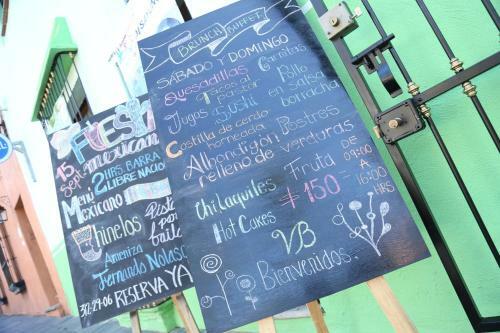 BRUNCH BUFFET
SÁBADO Y DOMINGO
Quesadillas
Carnitas
Tacos pastor
Pollo en salsa borracha
Jugos
Sushi
Costilla de cerdo horneada
Postres
Albondigon relleno de verduras
Chilaquiles
Fruta
DE 09:00 A 16:00 HRS
Hot Cakes
$150=
VB
Bienvenidos.
15 sept.
FIESTA
mexicana
2 HRS. BARRA LIBRE NACIONAL
Menú Mexicano
Chinelos
Pista para baile
Ameniza
Fernando Nolasco
312-29-06 RESERVA YA